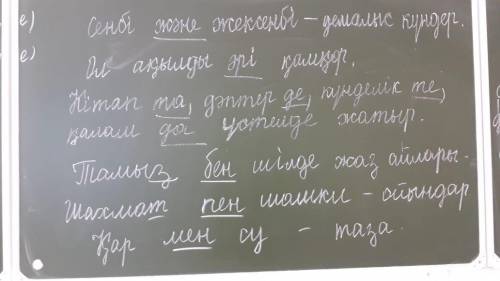 е) Сенбі және жексенбі – демалыс күндер.
е) Ол ақылды әрі қамқор.
Кітап та, дәптер де, күнделік те,
қалам да үстелде жатыр.
Тамыз бен шілде жаз айлары.
Шахмат пен шашки – ойындар
Қар мен су – таза.